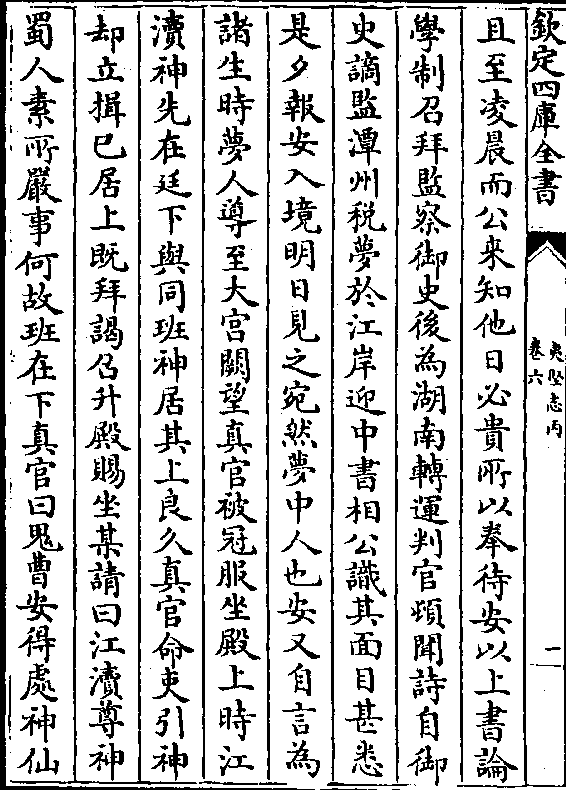 欽定四庫全書
夷堅志丙
卷六
一
且至凌晨而公来知他日必貴所以奉待安以上書論
學制召拜監察御史後為湖南轉運判官頃聞詩自御
史謫監潭州税夢於江岸迎中書相公識其面目甚悉
是夕報安入境明日見之宛然夢中人也安又自言為
諸生時夢人導至大宫闕望真官被冠服坐殿上時江
瀆神先在廷下與同班神居其上良久真官命吏引神
却立揖已居上既拜謁召升殿賜坐某請曰江瀆尊神
蜀人素所嚴事何故班在下真官曰鬼曹安得處神仙